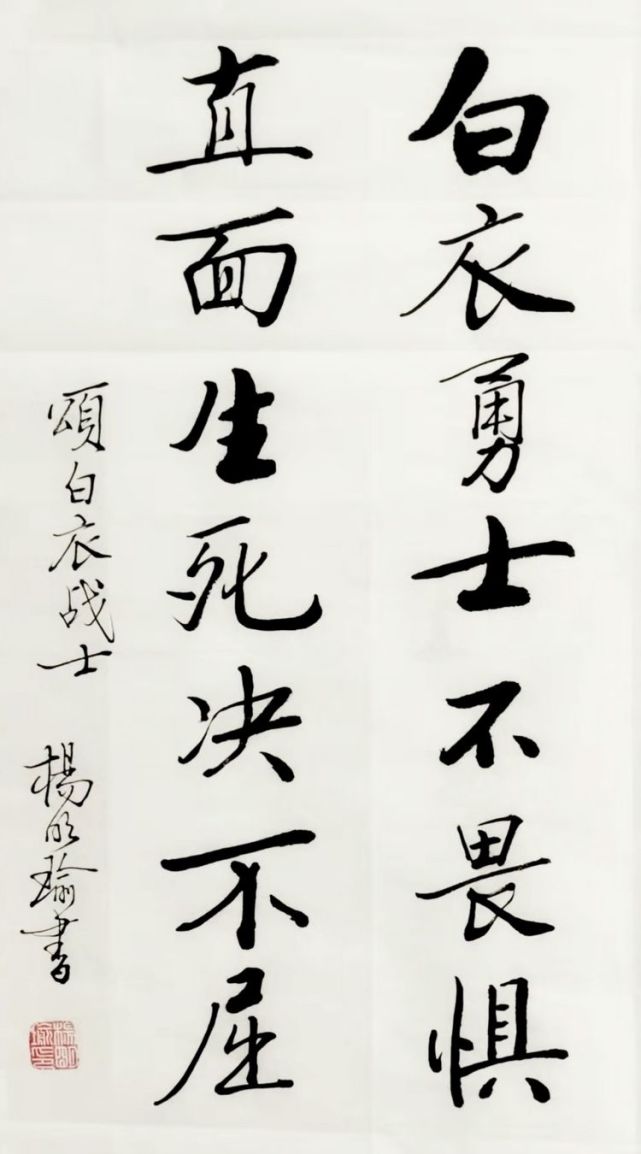 白衣勇士不畏惧
直面生死决不屈
頌白衣战士 楊明瑜書